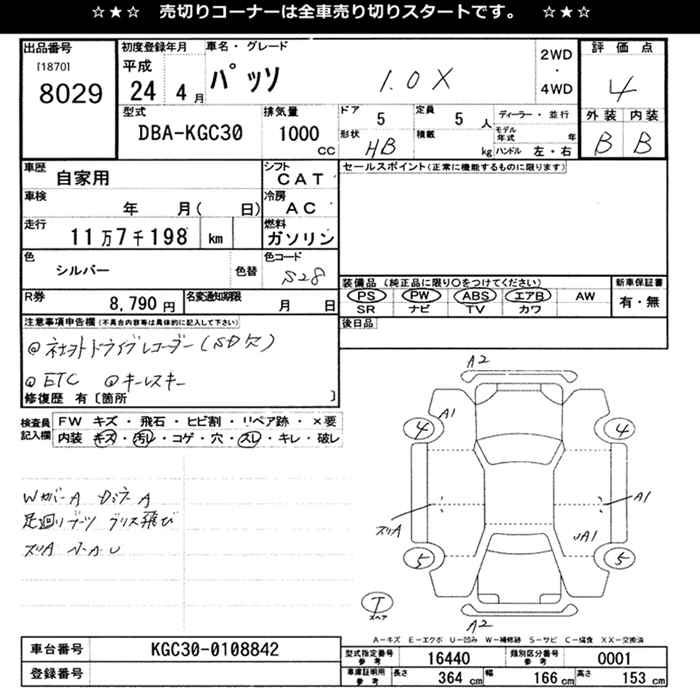 ☆★☆ 売切りコーナーは全車売り切りスタートです。 ☆★☆
出品番号
[1870]
8029
初度登録年月
平成
24 4月
車名・グレード
パッソ 1.0X
2WD
・
4WD
評価点
4
外装 内装
B B
型式
DBA-KGC30
排気量
1000
CC
ドア
5
定員
5 人
ディーラー・並行
形状
HB
積載
kg
モデル年式 年
ハンドル 左・右
車歴
自家用
シフト
CAT
セールスポイント(正常に機能するものに限ります)
車検
年 月( 日)
冷房
AC
走行
11万7千198 km
燃料
ガソリン
色
シルバー
色替
色コード
S28
装備品 (純正品に限り○をつけてください)
新車保証書
PS PW ABS エアB AW
SR ナビ TV カワ
有・無
R券
8,790 円
名変通知期限
月 日
後日品
注意事項申告欄(不具合内容等は具体的に記入して下さい)
@社外ドライブレコーダー(SD欠)
@ETC @キーレスキー
修復歴 有〔箇所 〕
検査員
記入欄
FW キズ・飛石・ヒビ割・リペア跡・×要
内装 キズ・汚レ・コゲ・穴・スレ・キレ・破レ
WカバーA
足廻りブーツ グリス飛び
A2
A1
4
4
スリA
A1
A1
5
5
T
スペア
A2
A-キズ E-エクボ U-凹み W-補修跡 S-サビ C-腐食 XX-交換済
車台番号
KGC30-0108842
登録番号
型式指定番号
参考
16440
類別区分番号
参考
0001
車庫証明用
参考
長さ
364 cm
幅
166 cm
高さ
153 cm